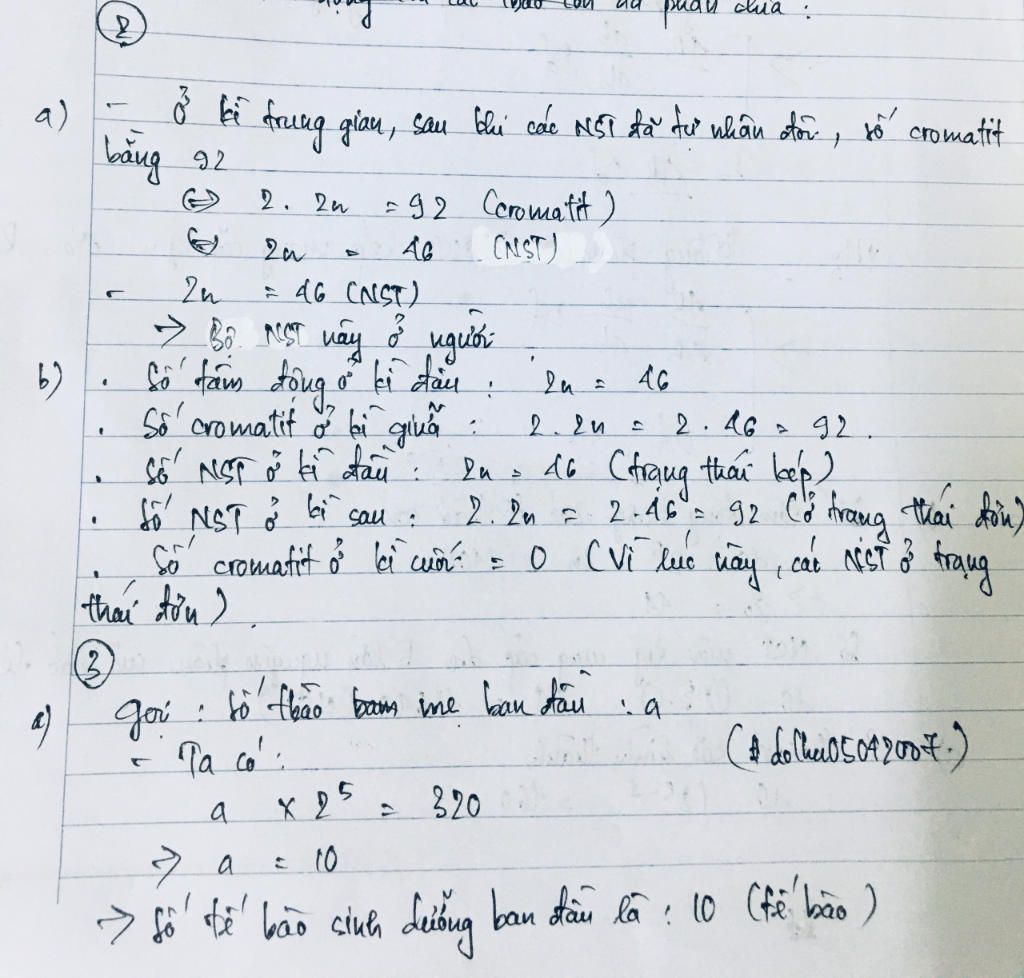 động của các tbào con đã phân chia :
②
a) - Ở kì trung gian, sau khi các NST đã tự nhân đôi, số cromatit
bằng 92
⇔ 2. 2n = 92 (cromatit)
⇔ 2n = 46 (NST)
- 2n = 46 (NST)
→ Bộ NST này ở người
b) . Số tâm động ở kì đầu : 2n = 46
. Số cromatit ở kì giữa : 2.2n = 2.46 = 92.
. Số NST ở kì đầu : 2n = 46 (trạng thái kép)
. Số NST ở kì sau : 2.2n = 2.46 = 92 (ở trạng thái đơn)
. Số cromatit ở kì cuối = 0 (Vì lúc này, các NST ở trạng
thái đơn).
③
a) gọi : số tbào mẹ ban đầu : a
- Ta có : (dolha05042007.)
a x 2⁵ = 320
⇒ a = 10
→ Số tế bào sinh dưỡng ban đầu là : 10 (tế bào)